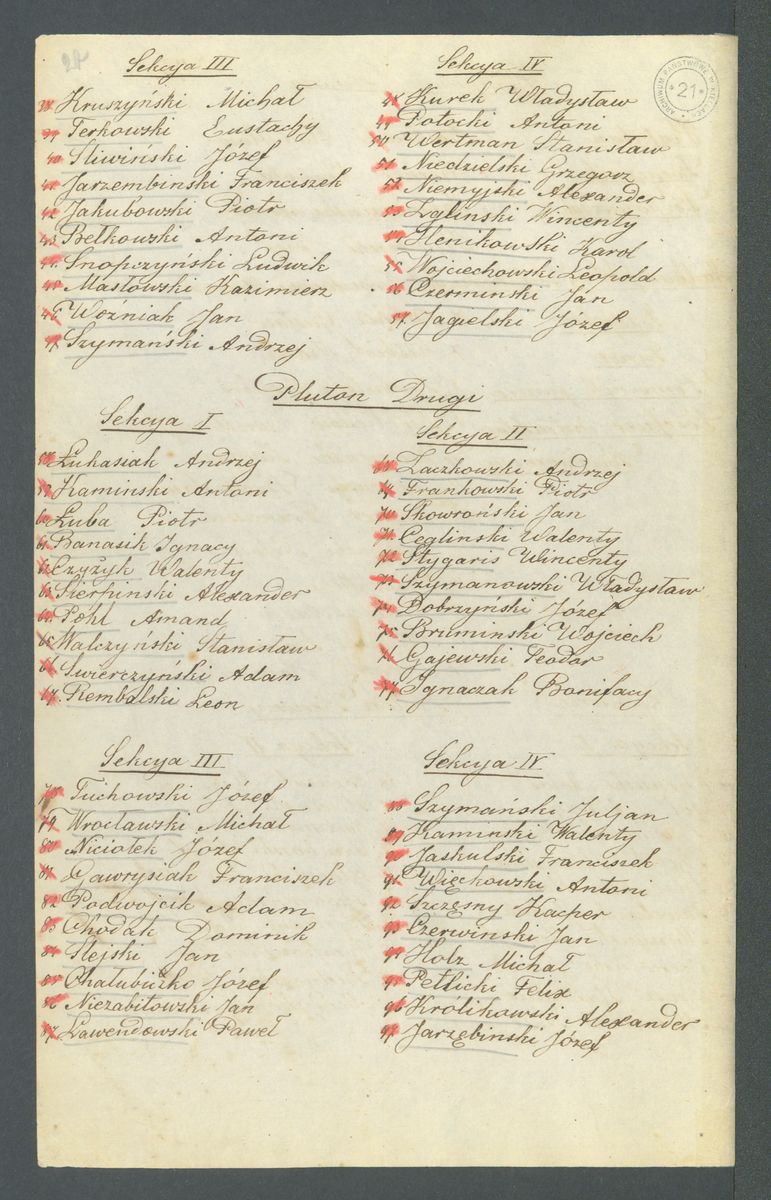 Sekcya III
38 Kruszyński Michał
39 Terkowski Eustachy
40 Sliwiński Józef
41 Jarzembinski Franciszek
42 Jakubowski Piotr
43 Bełkowski Antoni
44 Snopczyński Ludwik
45 Masłowski Kazimierz
46 Woźniak Jan
47 Szymański Andrzej
Sekcya IV
48 Kurek Władysław
49 Potocki Antoni
50 Wertman Stanisław
51 Niedzielski Grzegorz
52 Niemyjski Alexander
53 Zglinski Wincenty
54 Slenikowski Karol
55 Wojciechowski Leopold
56 Czerminski Jan
57 Jagielski Józef
ARCHIWUM PAŃSTWOWE W KIELCACH
21
Pluton Drugi
Sekcya I
58 Łukasiak Andrzej
59 Kaminski Antoni
60 Łuba Piotr
61 Banasik Ignacy
62 Czyżyk Walenty
63 Sierpinski Alexander
64 Pohl Amand
65 Walczyński Stanisław
66 Swierczyński Adam
67 Rembalski Leon
Sekcya II
68 Laczkowski Andrzej
69 Frankowski Piotr
70 Skowroński Jan
71 Ceglinski Walenty
72 Stygaris Wincenty
73 Szymanowski Władysław
74 Dobrzyński Józef
75 Bruminski Wojciech
76 Gajewski Teodor
77 Ignaczak Bonifacy
Sekcya III
78 Tuchowski Józef
79 Wrocławski Michał
80 Niciołek Józef
81 Gawrysiak Franciszek
82 Podwojcik Adam
83 Chodak Dominik
84 Slejski Jan
85 Chałubiczko Józef
86 Niezabitowski Jan
87 Lawendowski Paweł
Sekcya IV
88 Szymański Juljan
89 Kaminski Walenty
90 Jaskulski Franciszek
91 Więckowski Antoni
92 Szczęsny Kacper
93 Czerwinski Jan
94 Holz Michał
95 Petlicki Felix
96 Królikowski Alexander
97 Jarzębinski Józef